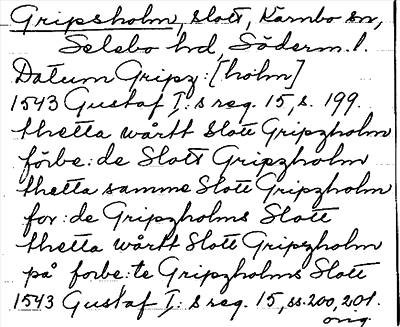 Gripsholm, slott, Kärnbo sn,
Selebo hd, Söderm. l.
Datum Gripz: [holm]
1543 Gustaf I: s reg. 15, s. 199.
thetta wårtt slott Gripzholm
förbe: de Slott Gripzholm
thetta samme Slott Gripzholm
for: de Gripzholms Slott
thetta wårtt Slott Gripzholm
på forbe: te Gripzholms Slott
1543 Gustaf I: s reg. 15, ss. 200, 201.
orig.